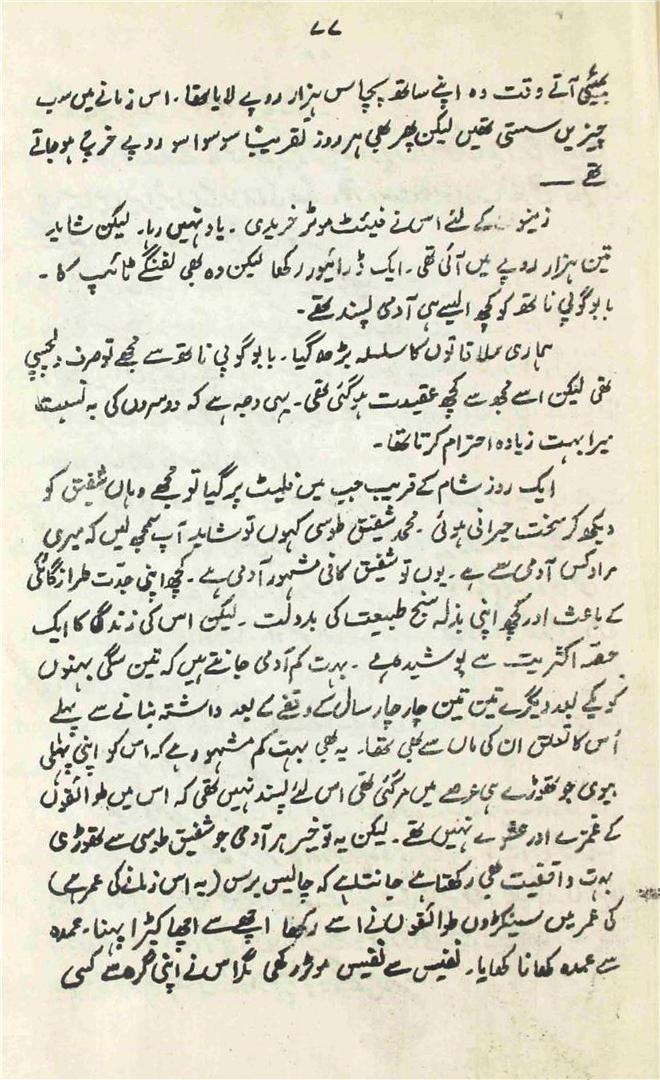 ۷۷
بمبئی آتے وقت وہ اپنے ساتھ پچاس ہزار روپے لایا تھا۔ اس زمانے میں سب
چیزیں سستی تھیں لیکن پھر بھی ہر روز تقریباً سو سوا سو روپے خرچ ہو جاتے
تھے ——
زینو کے لئے اس نے فیئٹ موٹر خریدی۔ یاد نہیں رہا۔ لیکن شاید
تین ہزار روپے میں آئی تھی۔ ایک ڈرائیور رکھا لیکن وہ بھی لفنگے ٹائپ کا۔
بابو گوپی ناتھ کو کچھ ایسے ہی آدمی پسند تھے۔
ہماری ملاقاتوں کا سلسلہ بڑھ گیا۔ بابو گوپی ناتھ سے مجھے تو صرف دلچسپی
تھی لیکن اسے مجھ سے کچھ عقیدت ہو گئی تھی۔ یہی وجہ ہے کہ دوسروں کی بہ نسبت
میرا بہت زیادہ احترام کرتا تھا۔
ایک روز شام کے قریب جب میں فلیٹ پر گیا تو مجھے وہاں شفیق کو
دیکھ کر سخت حیرانی ہوئی۔ محمد شفیق طوسی کہوں تو شاید آپ سمجھ لیں کہ میری
مراد کس آدمی سے ہے۔ یوں تو شفیق کافی مشہور آدمی ہے۔ کچھ اپنی جدت طراز گائکی
کے باعث اور کچھ اپنی بذلہ سنج طبیعت کی بدولت۔ لیکن اس کی زندگی کا ایک
حصّہ اکثریت سے پوشیدہ ہے۔ بہت کم آدمی جانتے ہیں کہ تین سگی بہنوں
کو یکے بعد دیگرے تین تین چار چار سال کے وقفے کے بعد داشتہ بنانے سے پہلے
اُس کا تعلق ان کی ماں سے بھی تھا۔ یہ بھی بہت کم مشہور ہے کہ اس کو اپنی پہلی
بیوی جو تھوڑے ہی عرصے میں مر گئی تھی اس لئے پسند نہیں تھی کہ اس میں طوائفوں
کے غمزے اور عشوے نہیں تھے۔ لیکن یہ تو خیر ہر آدمی جو شفیق طوسی سے تھوڑی
بہت واقفیت بھی رکھتا ہے جانتا ہے کہ چالیس برس (یہ اس زمانے کی عمر ہے)
کی عمر میں سینکڑوں طوائفوں نے اسے رکھا اچھے سے اچھا کپڑا پہنا۔ عمدہ
سے عمدہ کھانا کھایا۔ نفیس سے نفیس موٹر رکھی مگر اس نے اپنی گرہ سے کسی